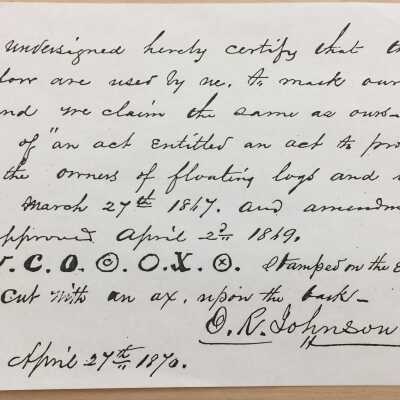 undersigned hereby certify that th
low are used by us. to mark our
nd we claim the same as ours-
of "an act entitled an act to pro
the owners of floating logs and
March 27th 1847. and amendm
approved April 2d 1849.
C. O. Ⓞ. O.X. ⓧ. Stamped on the E
Cut with an ax, upon the bark-
O. R. Johnson
April 27th 1870.